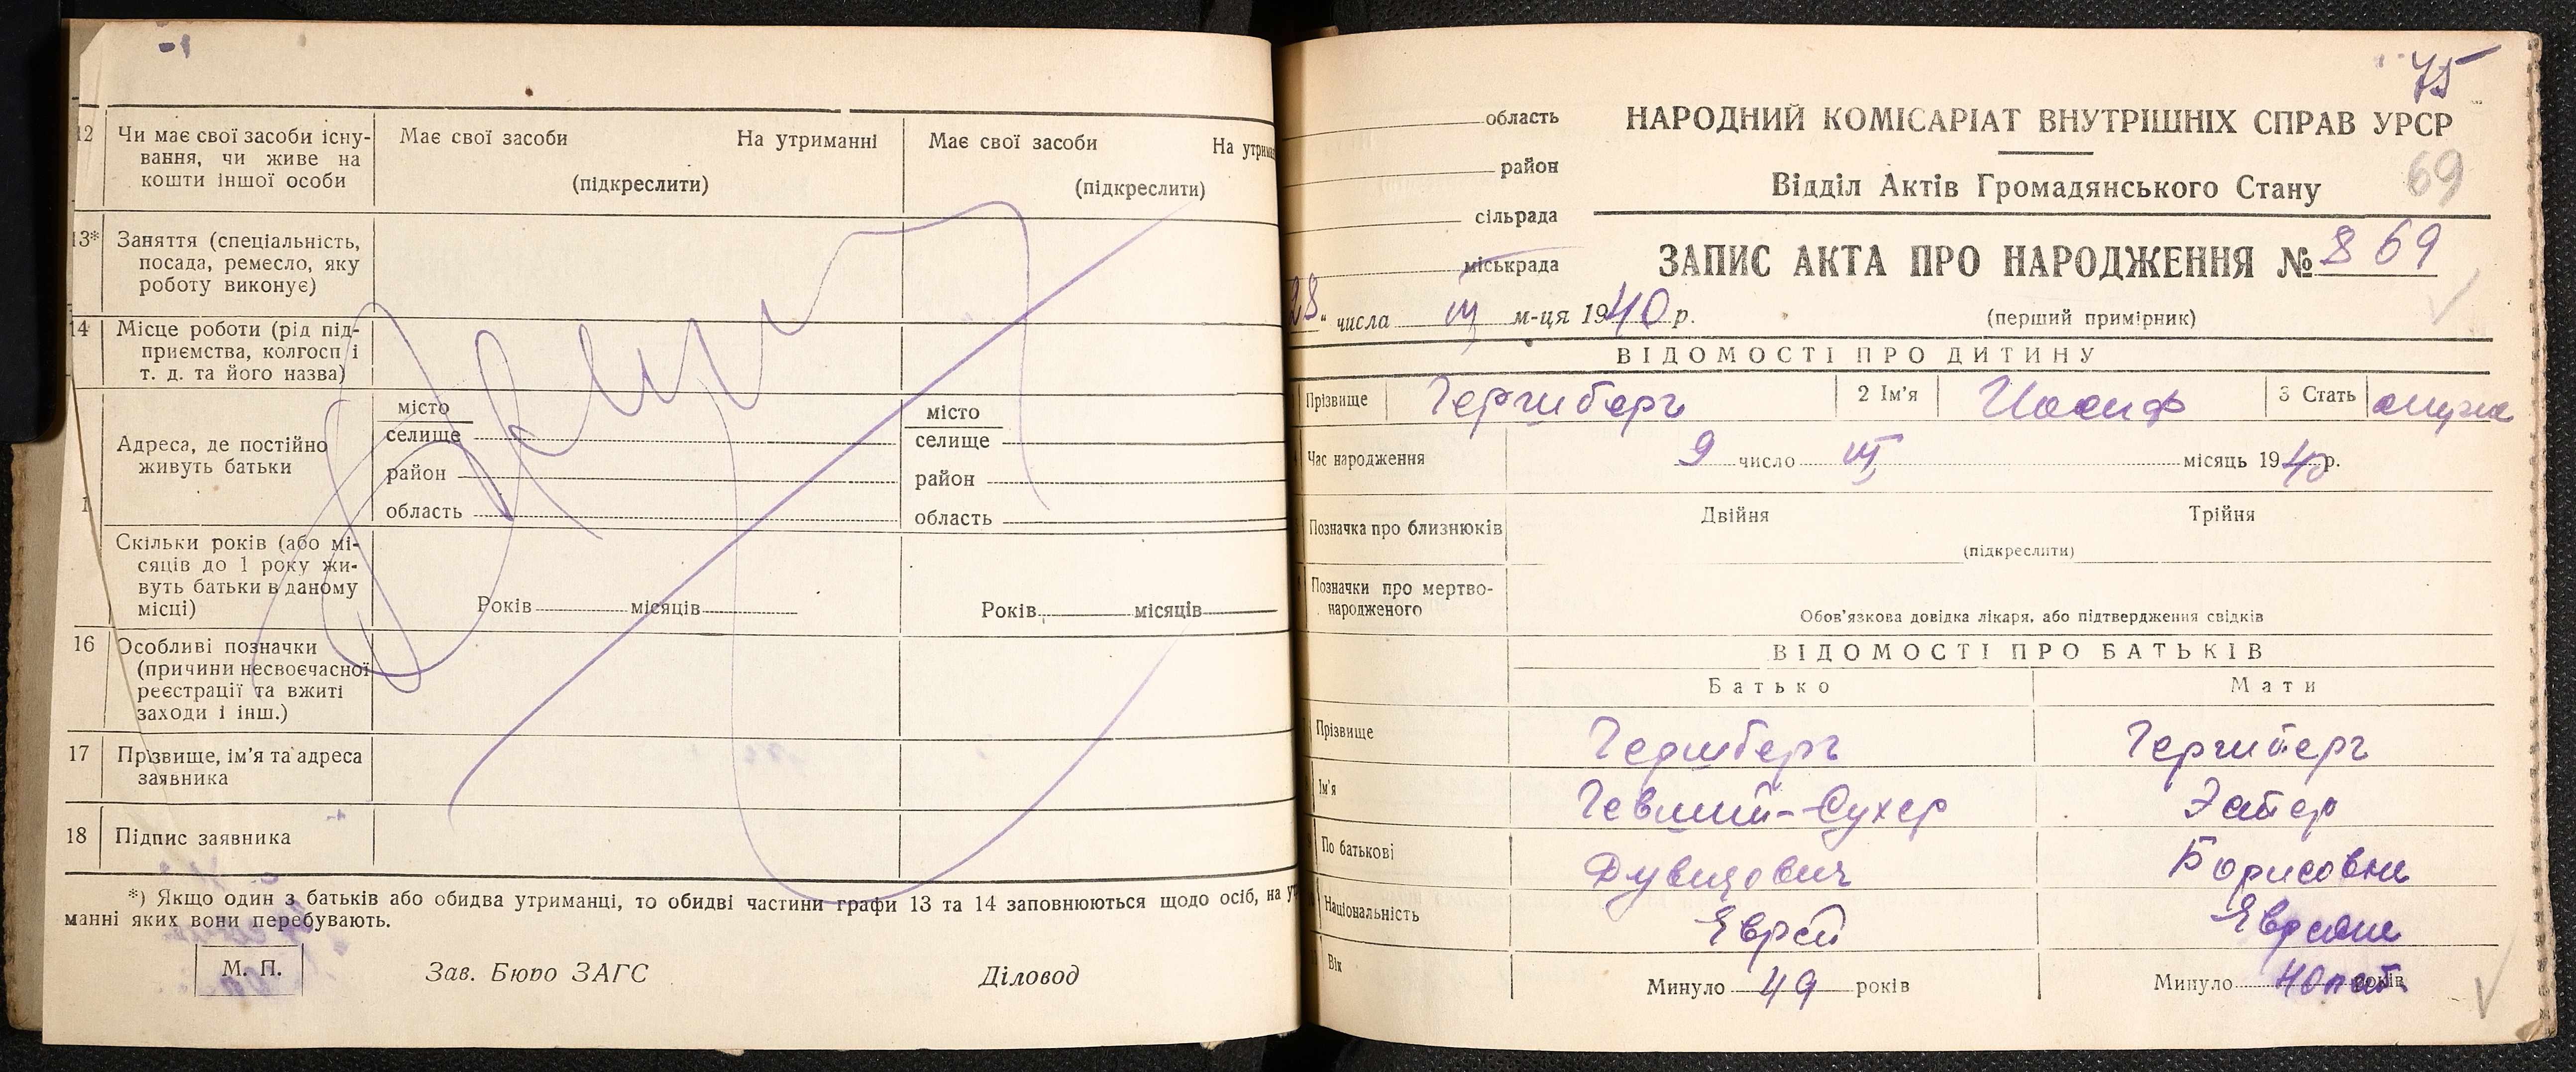 12 Чи має свої засоби існу-
вання, чи живе на
кошти іншої особи
Має свої засоби На утриманні
(підкреслити)
Має свої засоби На утрима
(підкреслити)
13* Заняття (спеціальність,
посада, ремесло, яку
роботу виконує)
14 Місце роботи (рід під-
приємства, колгосп і
т. д. та його назва)
Адреса, де постійно
живуть батьки
місто
селище
район
область
місто
селище
район
область
1
Скільки років (або мі-
сяців до 1 року жи-
вуть батьки в даному
місці)
Років місяців
Років місяців
16 Особливі позначки
(причини несвоєчасної
реєстрації та вжиті
заходи і інш.)
17 Прізвище, ім'я та адреса
заявника
18 Підпис заявника
*) Якщо один з батьків або обидва утриманці, то обидві частини графи 13 та 14 заповнюються щодо осіб, на ут
манні яких вони перебувають.
М. П.
Зав. Бюро ЗАГС Діловод
75
область
район
сільрада
міськрада
НАРОДНИЙ КОМІСАРІАТ ВНУТРІШНІХ СПРАВ УРСР
69
Відділ Актів Громадянського Стану
ЗАПИС АКТА ПРО НАРОДЖЕННЯ № 869
28 " числа III м-ця 1940 р.
(перший примірник)
ВІДОМОСТІ ПРО ДИТИНУ
Прізвище Гершберг 2 Ім'я Иосиф 3 Стать
Час народження 9 число III місяць 1940 р.
Позначка про близнюків Двійня Трійня
(підкреслити)
Позначки про мертво-
народженого
Обов'язкова довідка лікаря, або підтвердження свідків
ВІДОМОСТІ ПРО БАТЬКІВ
Батько Мати
Прізвище Гершберг Гершберг
Ім'я Сухер Эстер
По батькові Дувидович Борисовна
Національність Еврей Еврейка
Вік Минуло 49 років Минуло 40 лет років